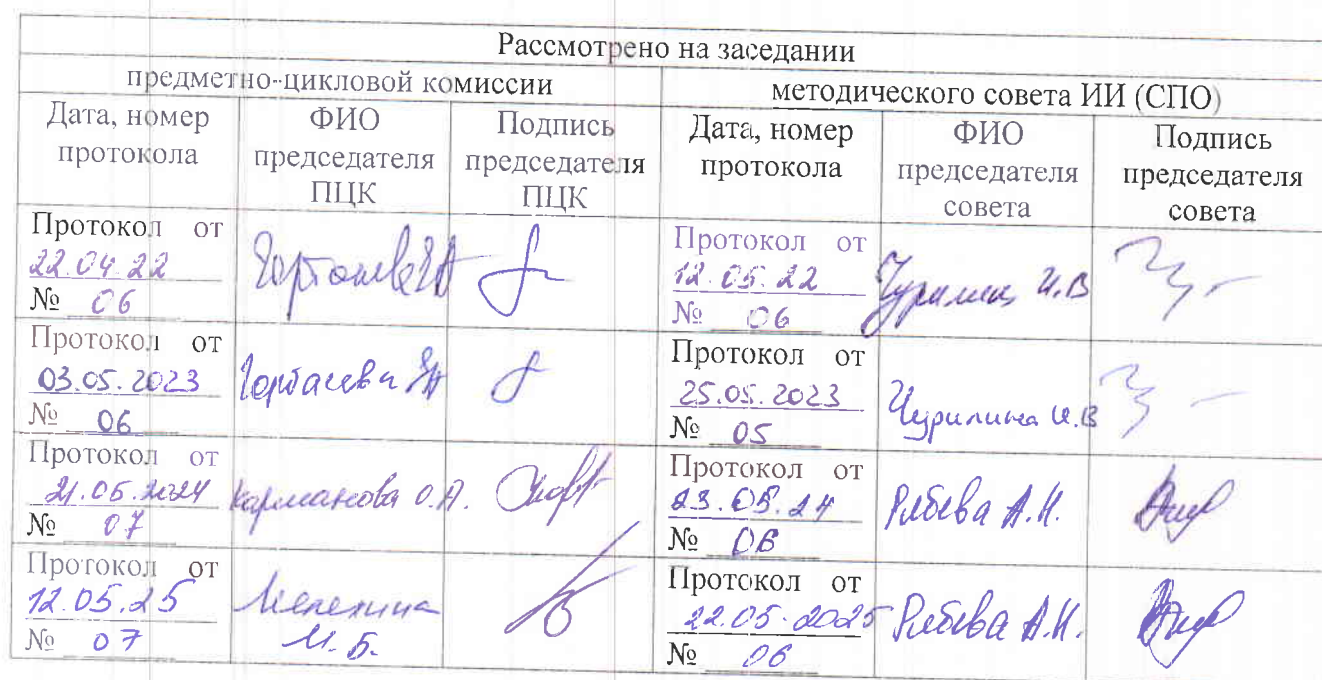 Рассмотрено на заседании
предметно-цикловой комиссии
методического совета ИИ (СПО)
Дата, номер протокола
ФИО председателя ПЦК
Подпись председателя ПЦК
Дата, номер протокола
ФИО председателя совета
Подпись председателя совета
Протокол от
22.04.22
№ 06
Протокол от
12.05.22
№ 06
И.В
Протокол от
03.05.2023
№ 06
Протокол от
25.05.2023
№ 05
Чурилина И.В
Протокол от
21.05.2024
№ 07
Карманова О.А.
Протокол от
23.05.24
№ 06
Рябева А.Н.
Протокол от
12.05.25
№ 07
Мелехина
И.Б.
Протокол от
22.05.2025
№ 06
Рябева А.Н.